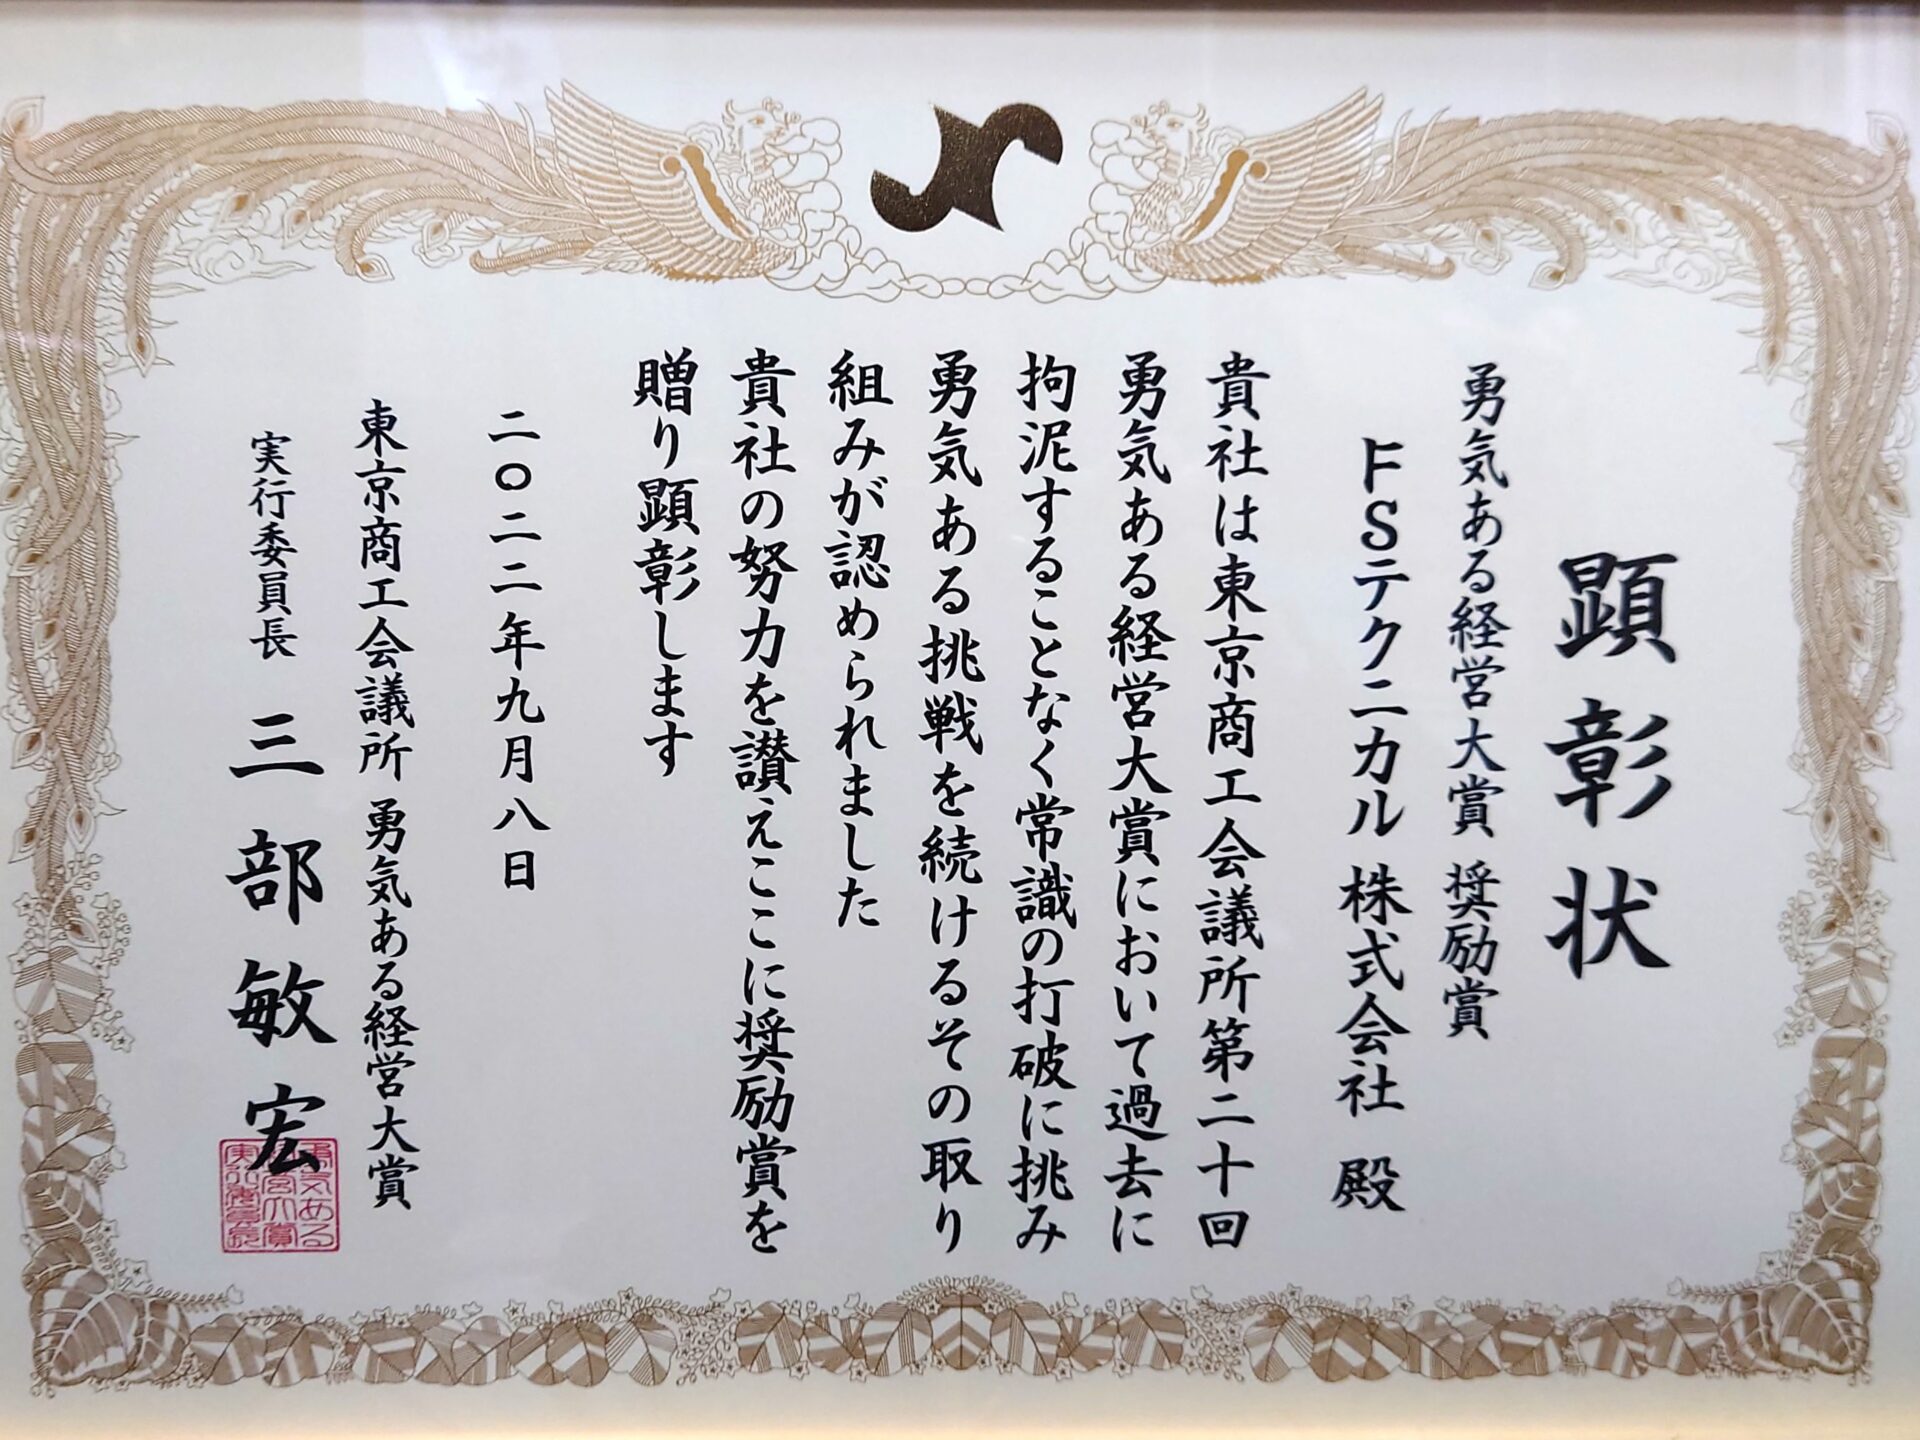 顕彰状
勇気ある経営大賞 奨励賞
FSテクニカル 株式会社 殿
貴社は東京商工会議所第二十回
勇気ある経営大賞において過去に
拘泥することなく常識の打破に挑み
勇気ある挑戦を続けるその取り
組みが認められました
貴社の努力を讃えここに奨励賞を
贈り顕彰します
二〇二二年九月八日
東京商工会議所 勇気ある経営大賞
実行委員長 三部敏宏
勇気ある
経営大賞
実行委員長